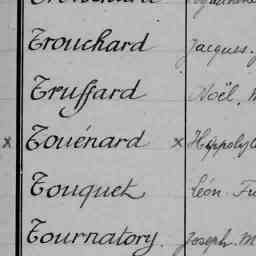 Trouchard Jacques.
Truffard Noël, M
x Touénard x Hippolyt
Touquet Léon Fr
Tournatory. Joseph M